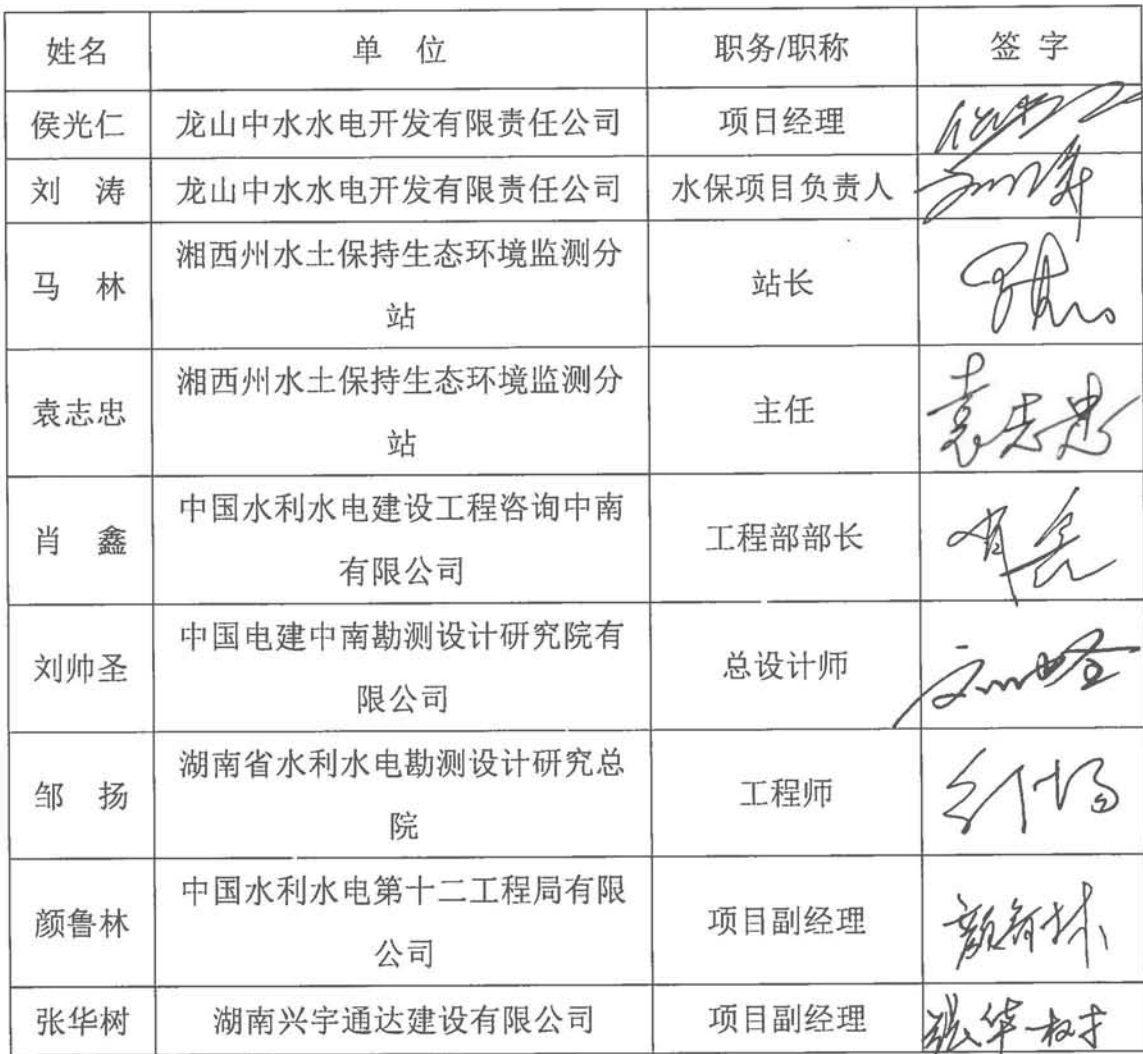 姓名 单 位 职务/职称 签 字
侯光仁 龙山中水水电开发有限责任公司 项目经理
刘 涛 龙山中水水电开发有限责任公司 水保项目负责人 刘涛
马 林 湘西州水土保持生态环境监测分 站长 马林
站
袁志忠 湘西州水土保持生态环境监测分 主任 袁志忠
站
肖 鑫 中国水利水电建设工程咨询中南 工程部部长 肖鑫
有限公司
刘帅圣 中国电建中南勘测设计研究院有 总设计师 刘帅圣
限公司
邹 扬 湖南省水利水电勘测设计研究总 工程师 邹扬
院
颜鲁林 中国水利水电第十二工程局有限 项目副经理 颜鲁林
公司
张华树 湖南兴宇通达建设有限公司 项目副经理 张华树